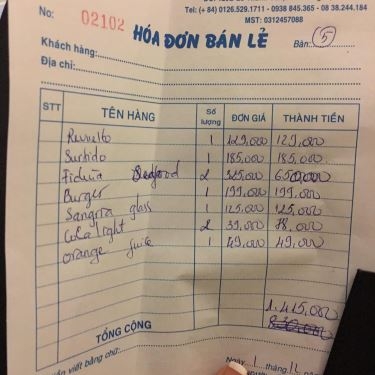 No: 02102
Tel: (+ 84) 0126.529.1711 - 0938 845.365 - 08 38.244.184
MST: 0312457088
HÓA ĐƠN BÁN LẺ
Bàn: 5
Khách hàng:
Địa chỉ:
STT TÊN HÀNG Số lượng ĐƠN GIÁ THÀNH TIỀN
Revuelto 1 129,000 129,000
Surtido 1 185,000 185,000
Fideua Seafood 2 325,000 650,000
Burger 1 199,000 199,000
Sangria glass 1 125,000 125,000
Cola light 2 39,000 78,000
orange juice 1 49,000 49,000
1.415,000
TỔNG CỘNG
viết bằng chữ:
Ngày 1 tháng 12